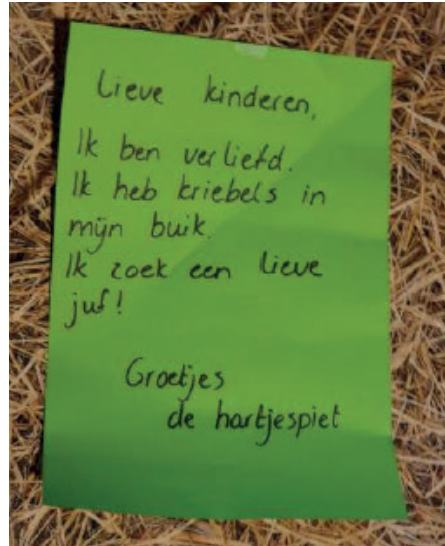 Lieve kinderen,
Ik ben verliefd.
Ik heb kriebels in
mijn buik.
Ik zoek een lieve
juf!
Groetjes
de hartjespiet